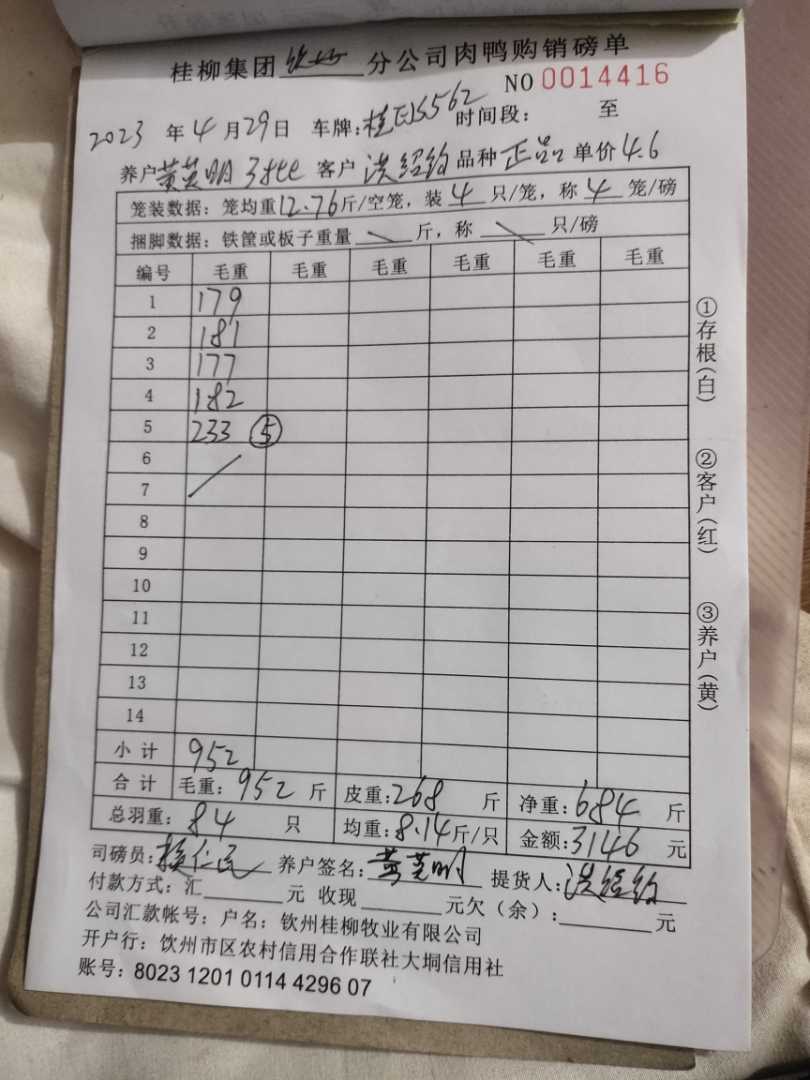 桂柳集团钦州分公司肉鸭购销磅单
NO 0014416
2023年4月29日 车牌:桂 5562 时间段: 至
养户黄英明3批 客户洪绍钧 品种正品 单价4.6
笼装数据:笼均重12.76斤/空笼,装4只/笼,称4笼/磅
捆脚数据:铁筐或板子重量 斤,称 只/磅
编号 毛重 毛重 毛重 毛重 毛重 毛重
1 179
2 181
3 177
4 182
5 233 ⑤
6
7
8
9
10
11
12
13
14
小计 952
合计 毛重:952斤 皮重:268斤 净重:684斤
总羽重:84只 均重:8.14斤/只 金额:3146元
司磅员: 仁民 养户签名:黄英明 提货人:洪绍钧
付款方式:汇 元 收现 元欠(余): 元
公司汇款帐号:户名:钦州桂柳牧业有限公司
开户行:钦州市区农村信用合作联社大垌信用社
账号:8023 1201 0114 4296 07
①存根(白)
②客户(红)
③养户(黄)